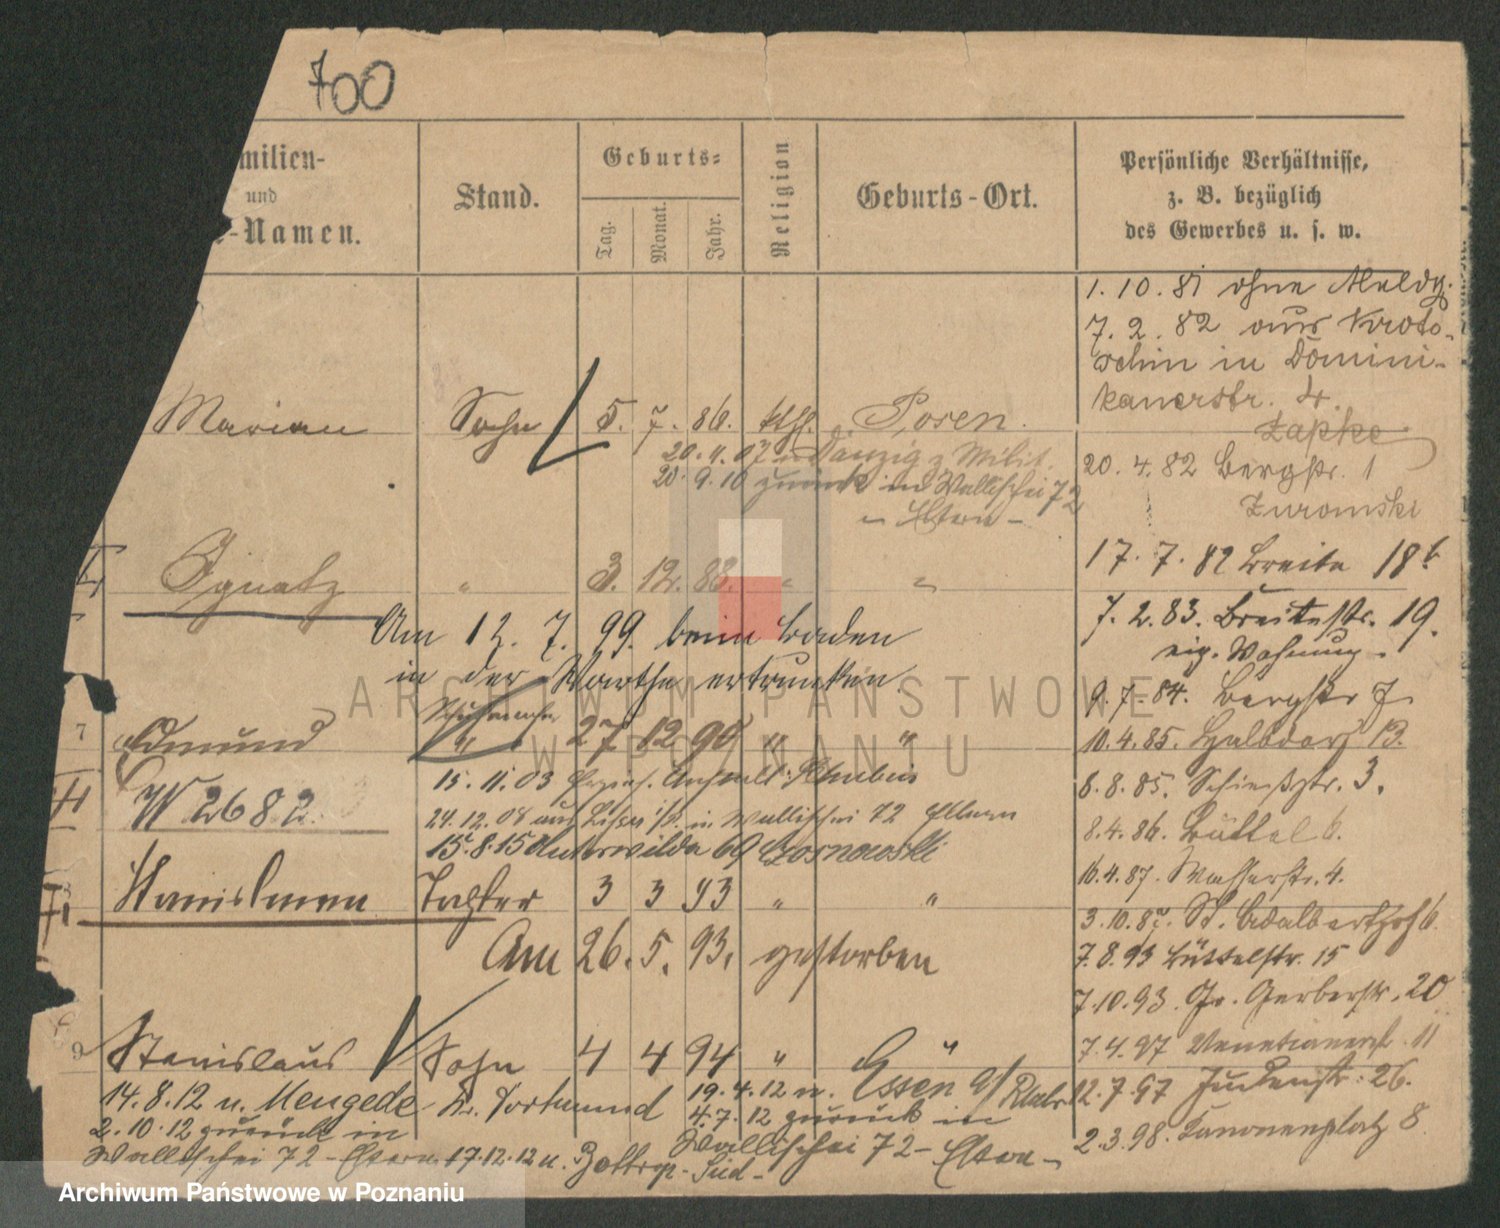 700
milien-
und
-Namen.
Stand.
Geburts-
Tag.
Monat.
Jahr.
Religion
Geburts-Ort.
Persönliche Verhältnisse,
z. B. bezüglich
des Gewerbes u. s. w.
1. 10. 81 ohne Meldg.
7. 2. 82 aus Kroto-
schin in Domini-
kanerstr. 4.
Zapke
20. 4. 82 Bergstr. 1
Zuromski
17. 7. 82 Breite 18b
7. 2. 83. Breitestr. 19.
eig. Wohnung.
9. 7. 84. Bergstr 7
10. 4. 85. Halbdorf 13.
8. 8. 85. Schießstr. 3.
8. 4. 86. Büttel 6.
16. 4. 87. Wasserstr. 4.
3. 10. 87. St. Adalberthof 6.
7. 8. 93 Büttelstr. 15
7. 10. 93. Gr. Gerberstr. 20
7. 4. 97 Venetianerst. 11
12. 7. 97 Judenstr. 26.
2. 3. 98. Kanonenplatz 8
Marian Sohn 5. 7. 86. kth. Posen.
Danzig z Milit.
20. 9. 10 zurück in Wallischei 72
Eltern -
Ignatz " 3. 12. 88. " "
Am 12. 7. 99. beim Baden
in der Warthe ertrunken
7 Edmund " 27 12 90 " "
15. 11. 03 Erzieh. Anstalt Schubin
W 2682.
24. 12. 08 aus Lissa i/P. in Wallischei 72 Eltern
15. 8. 15 Unterwilda 69
Tochter 3 3 93 " "
Am 26. 5. 93. gestorben
9 Stanislaus Sohn 4 4 94 " "
19. 4. 12 n. Essen a/Ruhr
14. 8. 12 n. Mengede Kr. Dortmund
4. 7. 12 zurück in
Wallischei 72 - Eltern -
2. 10. 12 zurück in
Wallischei 72 - Eltern 17. 12. 12 n. Bottrop - Süd -
ARCHIWUM PAŃSTWOWE
W POZNANIU
Archiwum Państwowe w Poznaniu